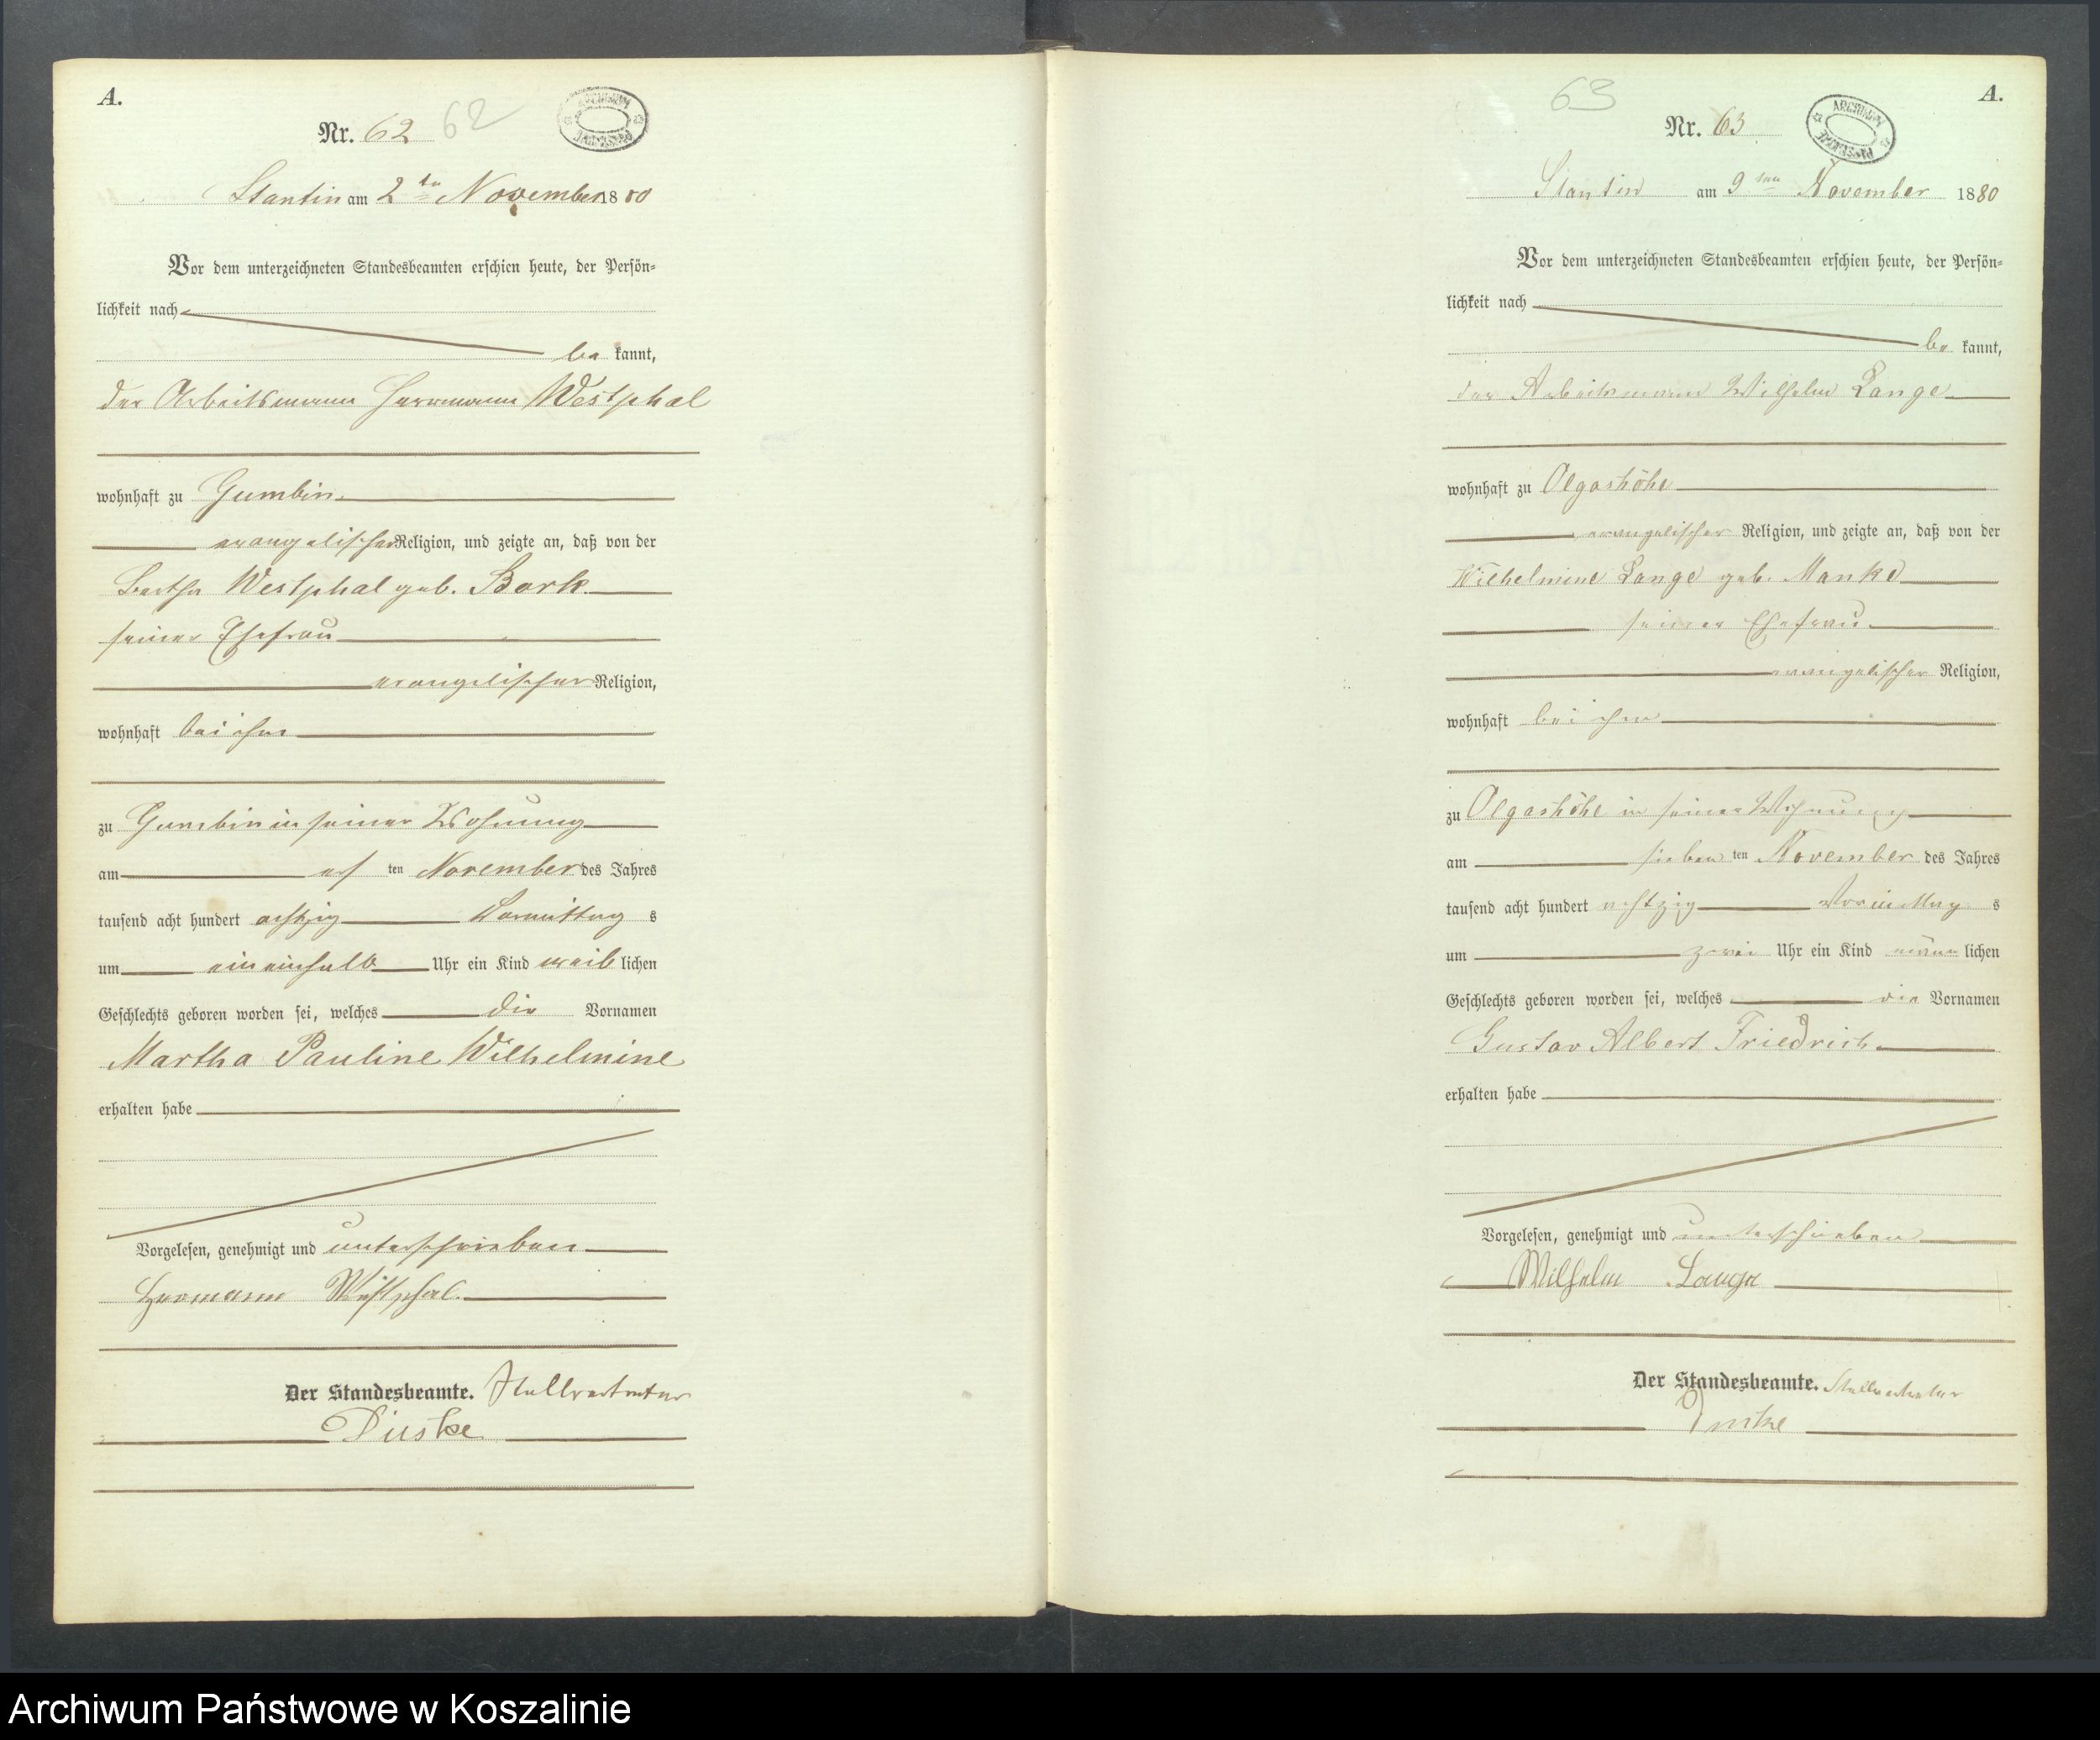 A.
Nr. 62 62
ARCHIWUM PAŃSTWOWE
Stantin am 2 ten November 1880
Vor dem unterzeichneten Standesbeamten erschien heute, der Persön-
lichkeit nach
be kannt,
der Arbeitsmann Herrmann Westphal
wohnhaft zu Gumbin
evangelischer Religion, und zeigte an, daß von der
Bertha Westphal geb. Bork
seiner Ehefrau
evangelischer Religion,
wohnhaft bei ihm
zu Gumbin in seiner Wohnung
am ersten November des Jahres
tausend acht hundert achtzig Vormittag s
um ein einhalb Uhr ein Kind weiblichen
Geschlechts geboren worden sei, welches die Vornamen
Martha Pauline Wilhelmine
erhalten habe
Vorgelesen, genehmigt und unterschrieben
Hermann Westphal.
Der Standesbeamte. Stellvertreter
A.
63
Nr. 63
ARCHIWUM PAŃSTWOWE
Stantin am 9 ten November 1880
Vor dem unterzeichneten Standesbeamten erschien heute, der Persön-
lichkeit nach
be kannt,
der Arbeitsmann Wilhelm Lange
wohnhaft zu Olgashöhe
evangelischer Religion, und zeigte an, daß von der
Wilhelmine Lange geb. Manke
seiner Ehefrau
evangelischer Religion,
wohnhaft bei ihm
zu Olgashöhe in seiner Wohnung
am sieben ten November des Jahres
tausend acht hundert achtzig Vormittag s
um zwei Uhr ein Kind männlichen
Geschlechts geboren worden sei, welches die Vornamen
Gustav Albert Friedrich
erhalten habe
Vorgelesen, genehmigt und unterschrieben
Wilhelm Lange
Der Standesbeamte. Stellvertreter
Archiwum Państwowe w Koszalinie